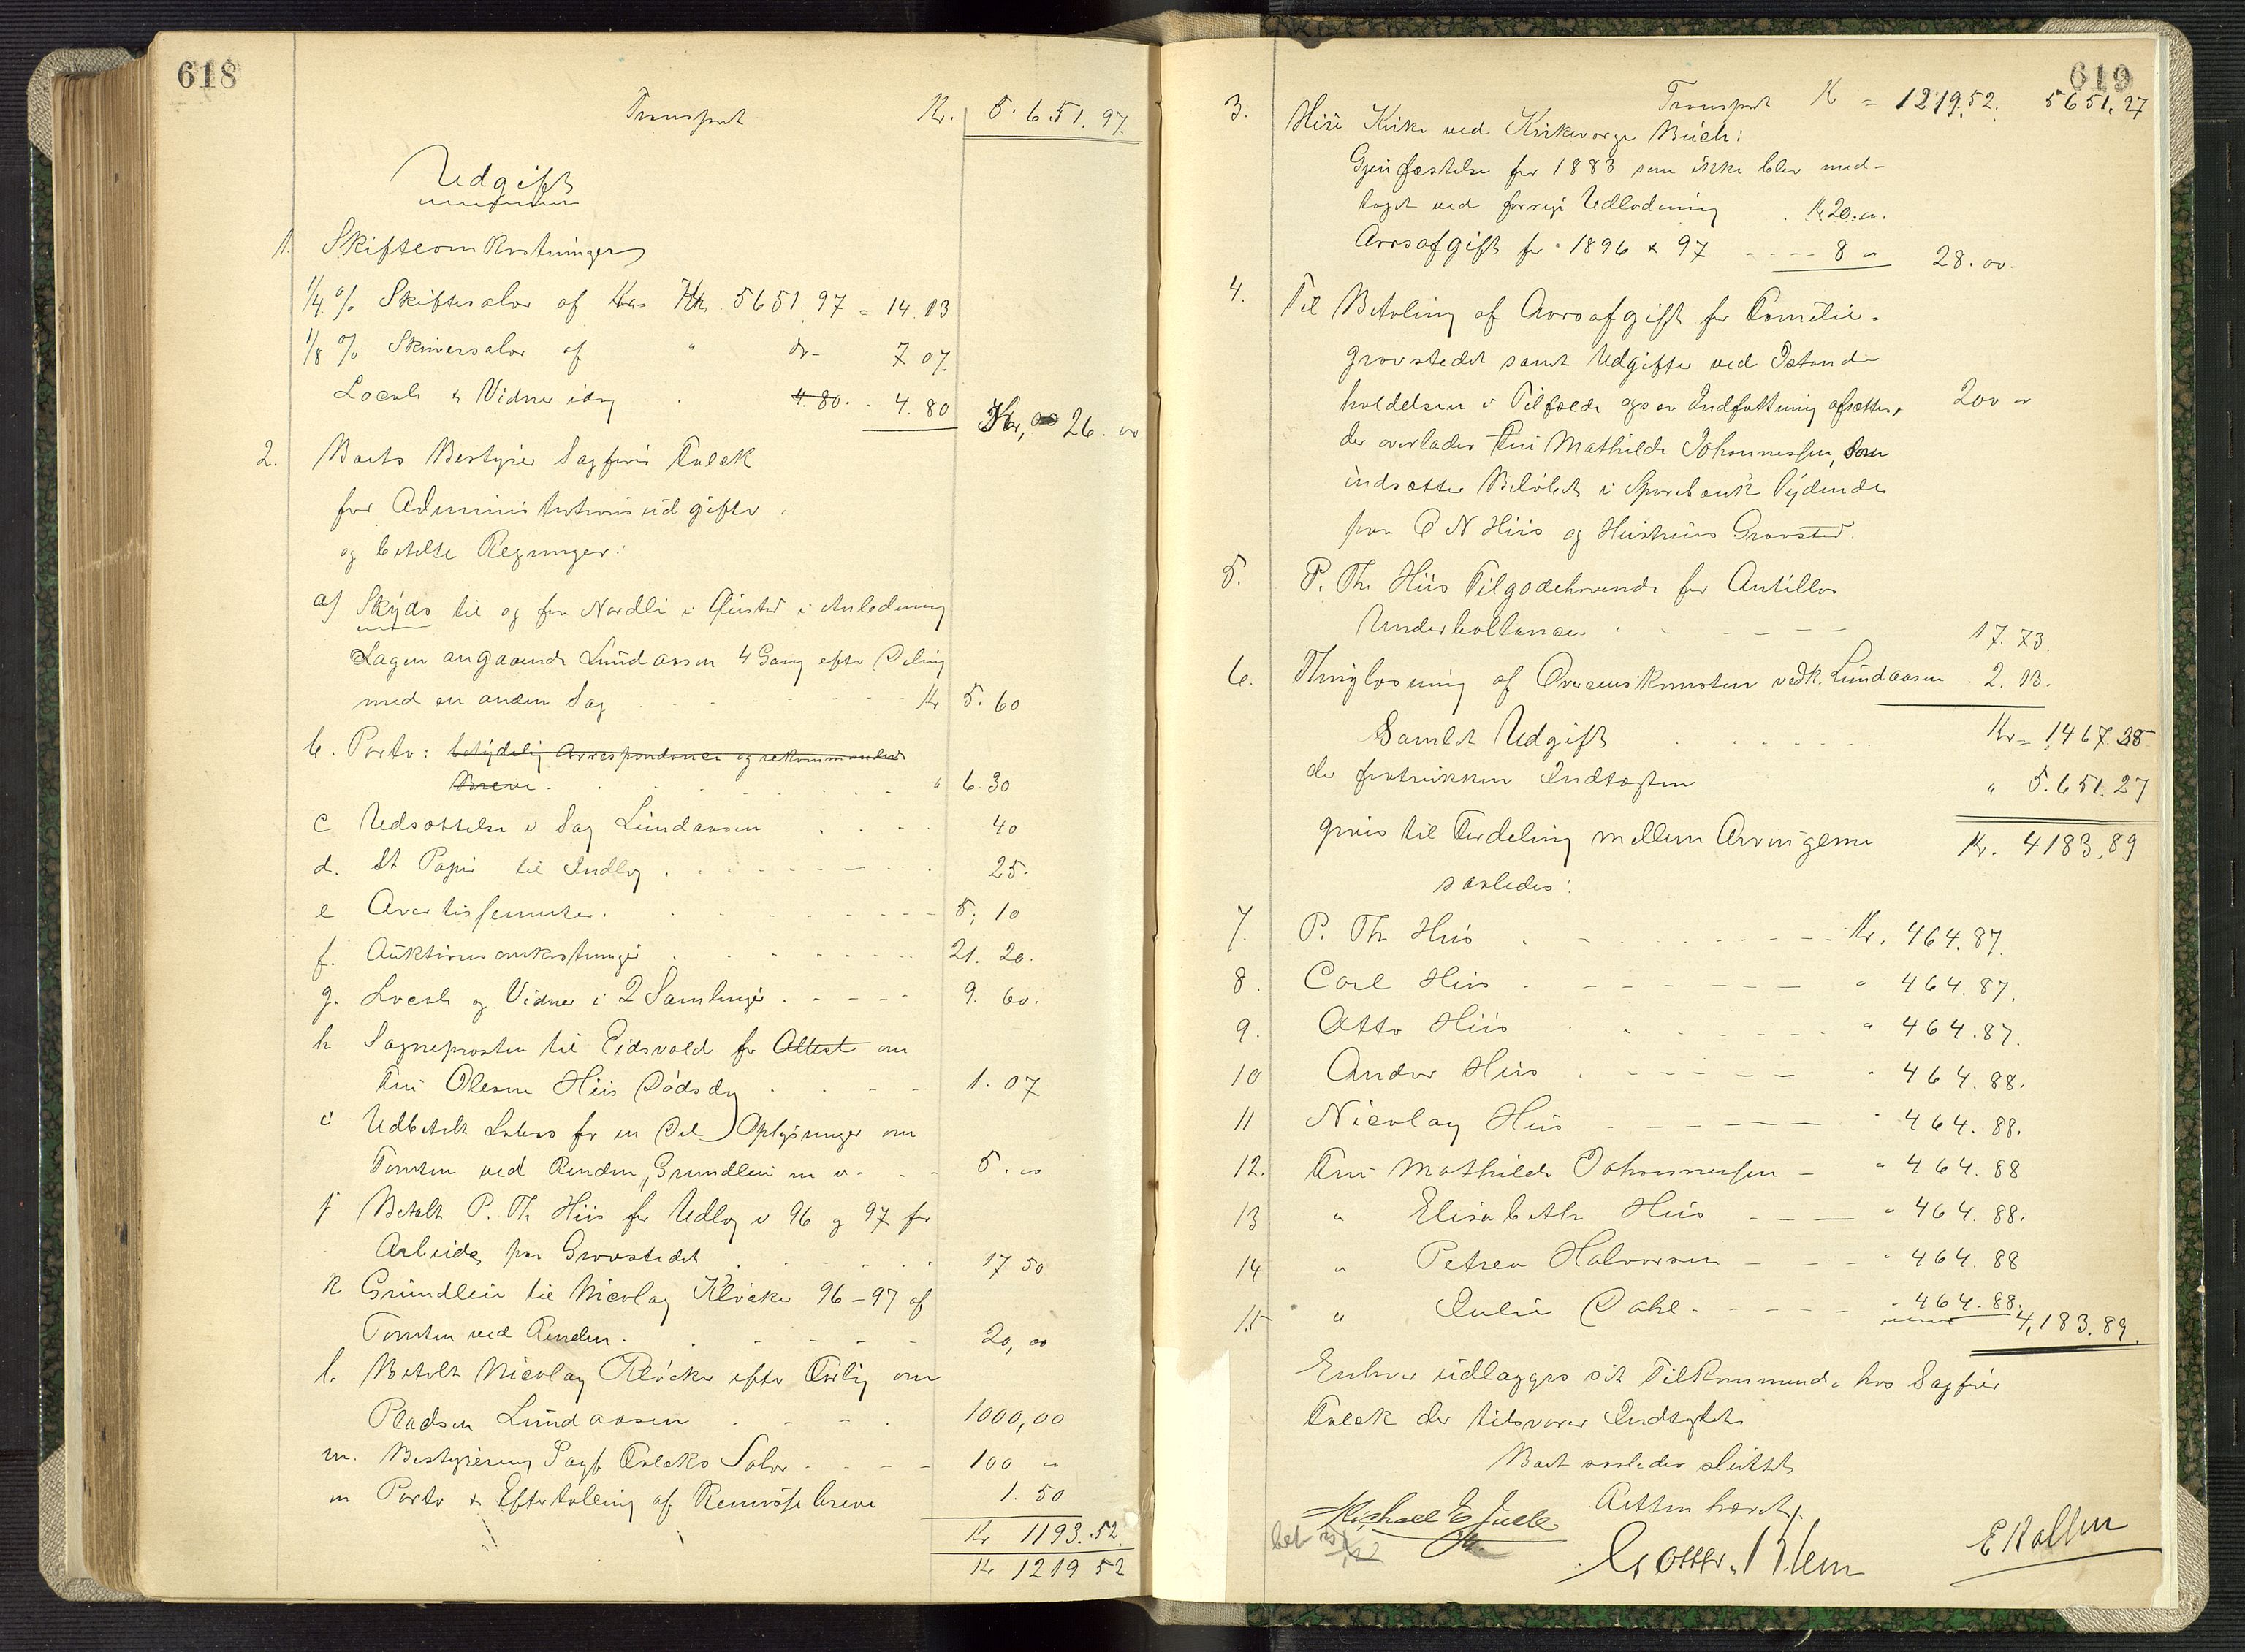 618
Transport Kr. 5.651.97.
Udgift
1. Skifteomkostninger
1/4 % Skiftesalær af Kr. 5651.97 = 14.13
1/8 % Skriversalær af " do- 7 07.
Locale & Vidner idag . 4.80. - 4.80 Kr, 26. oo
2. Boets Bestyrer Sagfører Falck
for Administrationsudgifter
og betalte Regninger:
a) Skyds til og fra Nordli i Anledning
Sagen angaaende Lundaasen 4 Gang efter Deling
med en anden Sag Kr 5.60
b. Porto: betydelig Correspondance og rekommanderede
Breve. " 6.30
c Udsættelse i Sag Lundaasen 40
d. St Papir til Indlæg 25.
e Avertissementer. 5;10
f. Auktionsomkostninger 21.20.
g. Locale og Vidner i 2 Samlinger 9.60.
h Sognepresten til Eidsvold for Attest om
Fru Olesne Hiis Dødsdag 1.07
i Udbetalt for en Del Oplysninger om
Tomten ved Renden, Grundleie m v. 5. oo
j Betalt P. Th Hiis for Udlæg i 96 og 97 for
Arbeide paa Gravstedet 17 50
k Grundleie til Nicolay Kløcker 96-97 af
Tomten ved Renden. 20,oo
l. Betalt Nicolay Kløcker efter Forlig om
Pladsen Lundaasen 1000,00
m. Bestyrerens Sagf. Falcks Salær 100 "
n Porto & Eftertælling af Remissebreve 1.50
Kr 1193.52.
Kr 1219 52
619
Transport Kr = 1219.52. 5651.27
3. Hiis Kirke ved Kirkeværge Buch:
Gjenfæstelse for 1883 som ikke blev med-
taget ved forrige Udlodning . Kr 20.oo.
Aarsafgift for 1896 & 97 8 " 28.oo.
4. Til Betaling af Aarsafgift for Familie-
gravstedet samt Udgifter ved Istand-
holdelsen i Tilfælde af Indfatning afsættes, 200 "
der overlades Fru Mathilde Johannessen, som
indsætter Beløbet i Sparebank lydende
paa O N Hiis og Hustrues Gravsted.
5. P. Th. Hiis Tilgodehavende for
Underballance. 17.73.
6. Thinglæsning af Overenskomsten vedk. Lundaasen 2.13.
Samlet Udgift Kr = 1,467.38
der fratrukken Indtægten " 5.651.27
gives til Fordeling mellem Arvingerne Kr. 4183,89
saaledes:
7. P. Th Hiis Kr. 464.87.
8. Carl Hiis " 464.87.
9. Otto Hiis " 464.87.
10 Andor Hiis " 464.88.
11 Nicolay Hiis " 464.88.
12. Fru Mathilde Johannessen - " 464.88
13 " Elisabeth Hiis " 464.88.
14 " Petrea Halvorsen " 464.88
15 " Julie Dahl " 464.88. 4,183.89.
Enhver udlægges sit Tilkommende hos Sagfører
Falck der tilsvarer Indtægten
Boet saaledes sluttet
Retten hævet.
Michael E Juell
E Kallum